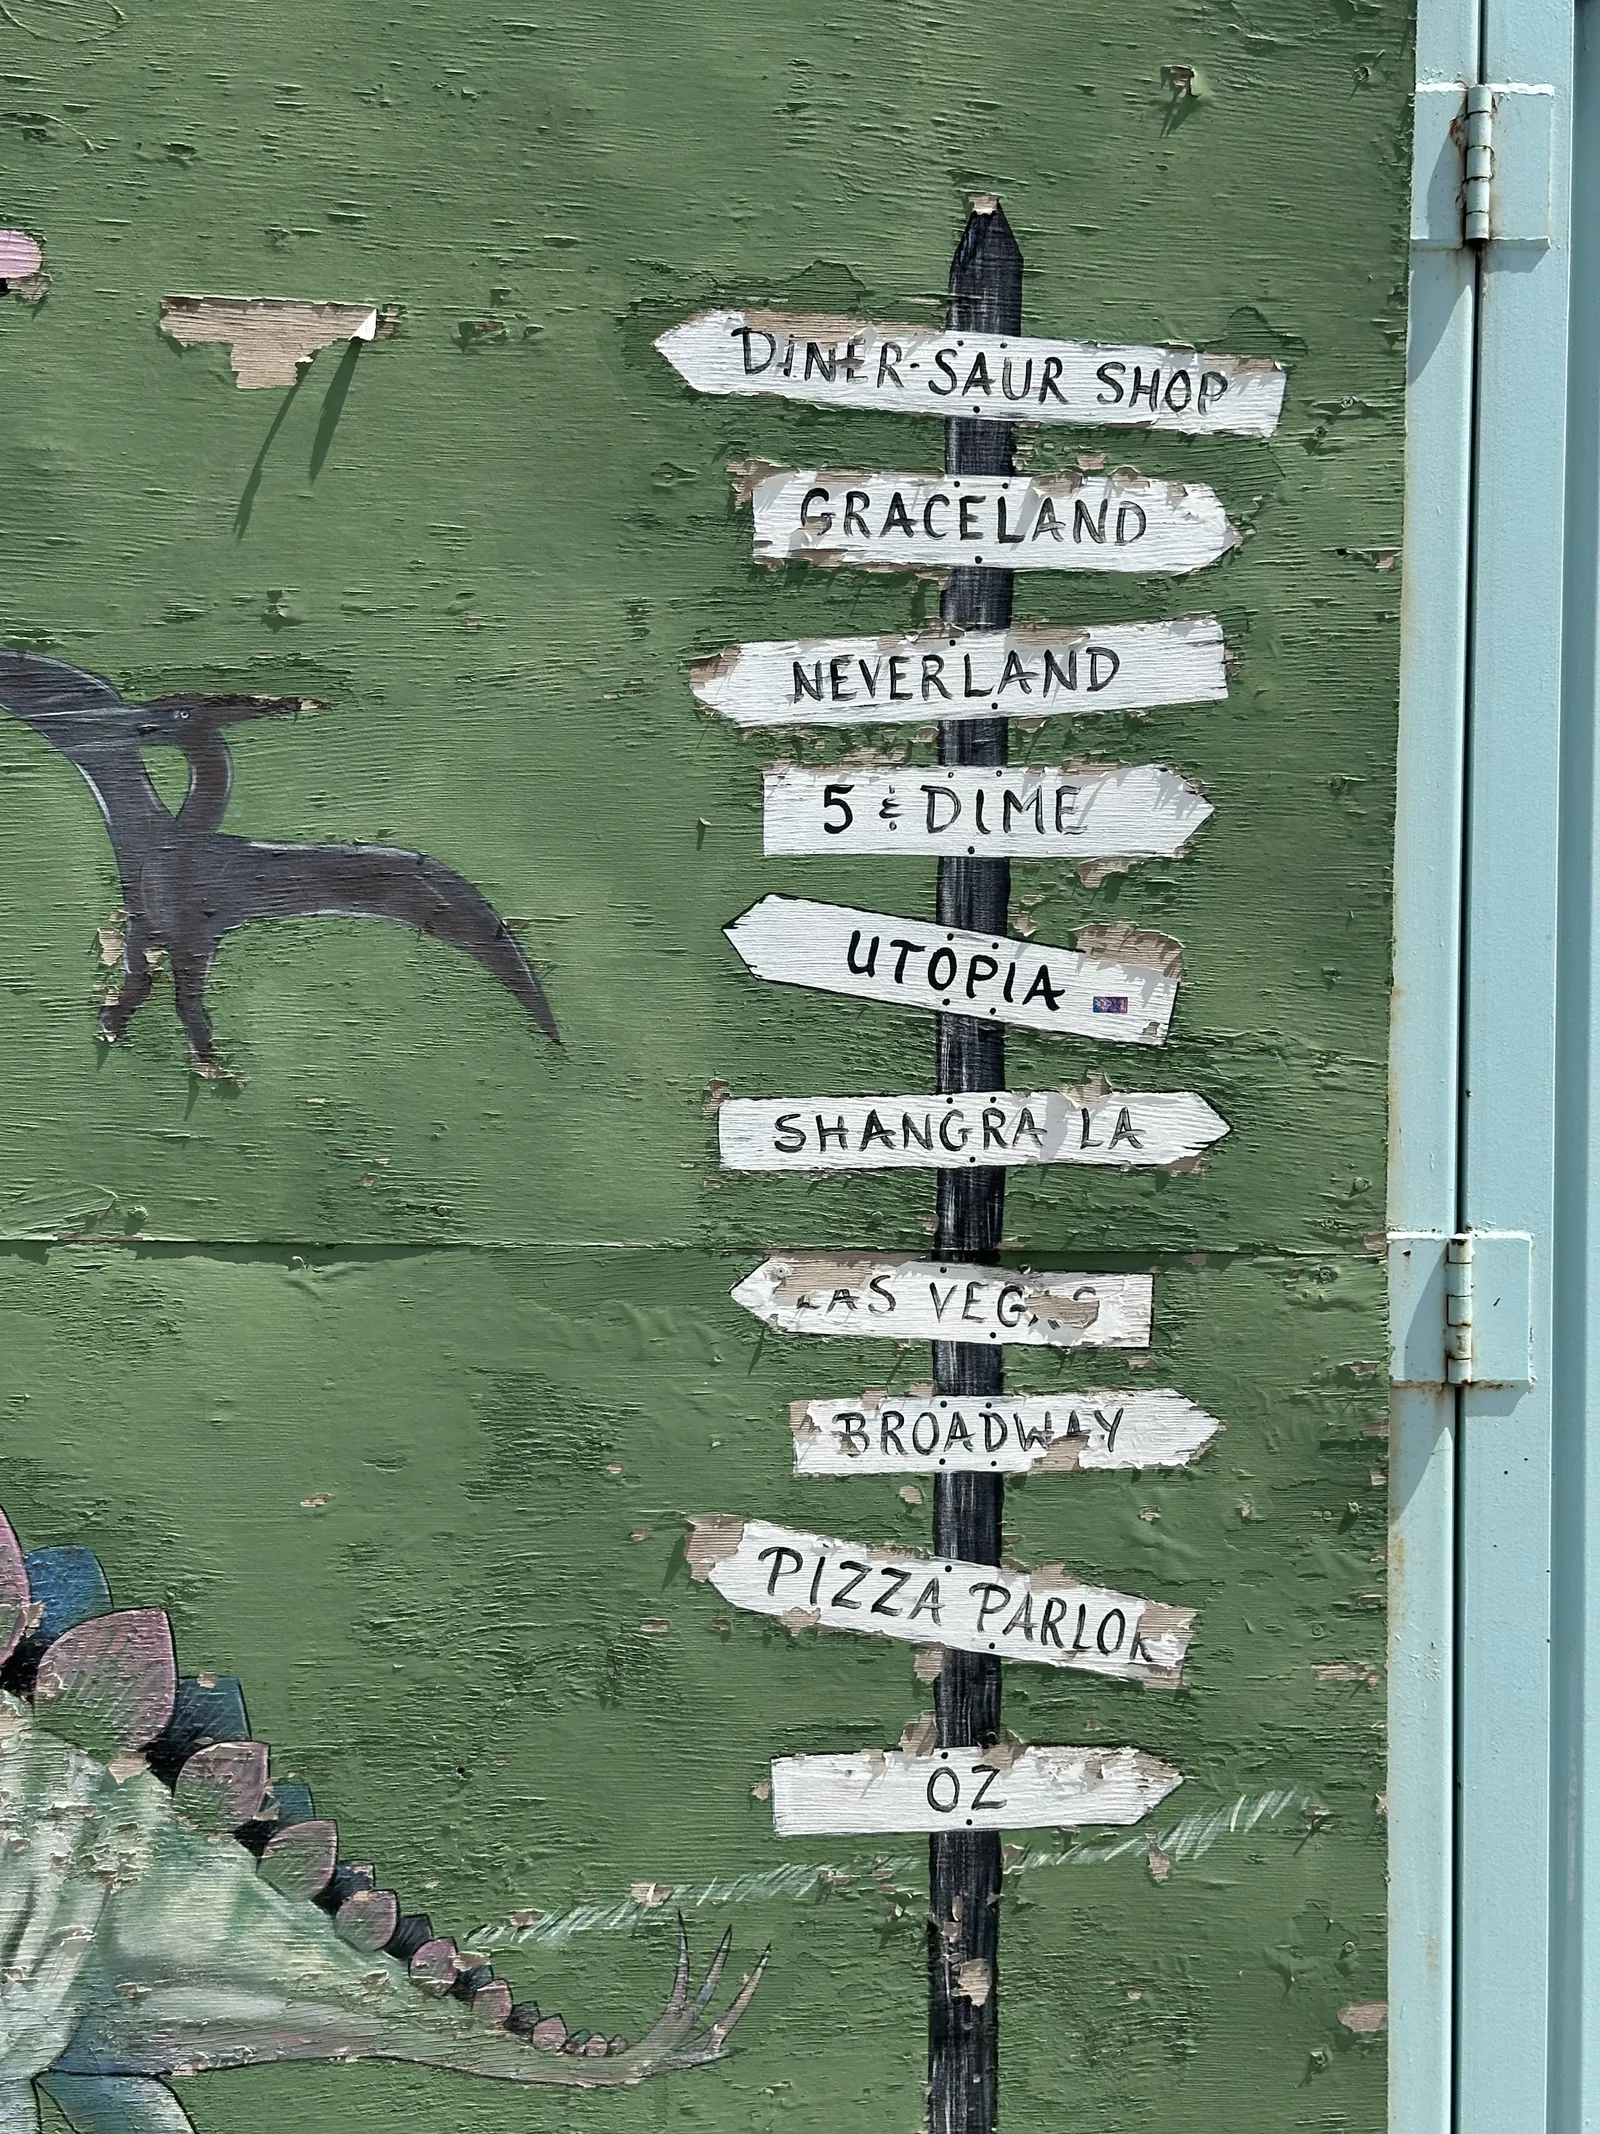 DINER-SAUR SHOP
GRACELAND
NEVERLAND
5 & DIME
UTOPIA
SHANGRA LA
LAS VEGAS
BROADWAY
PIZZA PARLOR
OZ